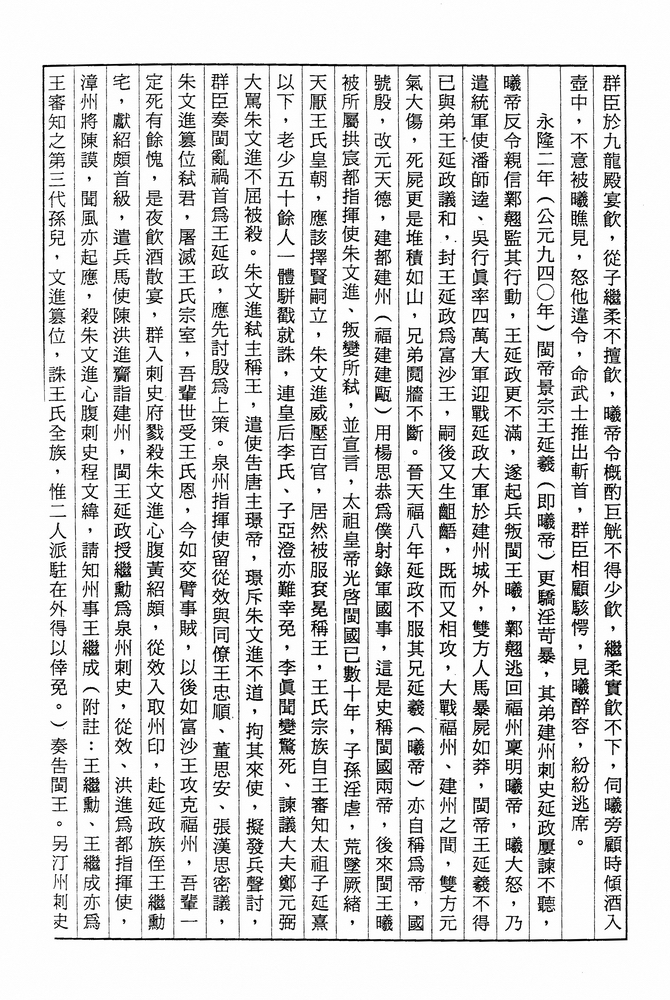 群臣於九龍殿宴飲，從子繼柔不擅飲，曦帝令概酌巨觥不得少飲，繼柔實飲不下，伺曦旁顧時傾酒入
壺中，不意被曦瞧見，怒他違令，命武士推出斬首，群臣相顧駭愕，見曦醉容，紛紛逃席。
永隆二年（公元九四〇年）閩帝景宗王延羲（即曦帝）更驕淫苛暴，其弟建州刺史延政屢諫不聽，
曦帝反令親信鄴翹監其行動，王延政更不滿，遂起兵叛閩王曦，鄴翹逃回福州稟明曦帝，曦大怒，乃
遣統軍使潘師逵、吳行眞率四萬大軍迎戰延政大軍於建州城外，雙方人馬暴屍如莽，閩帝王延羲不得
已與弟王延政議和，封王延政爲富沙王，嗣後又生齟齬，既而又相攻，大戰福州、建州之間，雙方元
氣大傷，死屍更是堆積如山，兄弟鬩牆不斷。晉天福八年延政不服其兄延羲（曦帝）亦自稱爲帝，國
號殷，改元天德，建都建州（福建建甌）用楊思恭爲僕射錄軍國事，這是史稱閩國兩帝，後來閩王曦
被所屬拱宸都指揮使朱文進、叛變所弒，並宣言，太祖皇帝光啓閩國已數十年，子孫淫虐，荒墜厥緒，
天厭王氏皇朝，應該擇賢嗣立，朱文進威壓百官，居然被服衮冕稱王，王氏宗族自王審知太祖子延熹
以下，老少五十餘人一體駢戳就誅，連皇后李氏、子亞澄亦難幸免，李眞聞變驚死、諫議大夫鄭元弼
大罵朱文進不屈被殺。朱文進弒主稱王，遣使告唐主璟帝，璟斥朱文進不道，拘其來使，擬發兵聲討，
群臣奏閩亂禍首爲王延政，應先討殷爲上策。泉州指揮使留從效與同僚王忠順、董思安、張漢思密議，
朱文進篡位弒君，屠滅王氏宗室，吾輩世受王氏恩，今如交臂事賊，以後如富沙王攻克福州，吾輩一
定死有餘愧，是夜飲酒散宴，群入刺史府戮殺朱文進心腹黃紹頗，從效入取州印，赴延政族侄王繼勳
宅，獻紹頗首級，遣兵馬使陳洪進齎詣建州，閩王延政授繼勳爲泉州刺史，從效、洪進爲都指揮使，
漳州將陳謨，聞風亦起應，殺朱文進心腹刺史程文緯，請知州事王繼成（附註：王繼勳、王繼成亦爲
王審知之第三代孫兒，文進篡位，誅王氏全族，惟二人派駐在外得以倖免。）奏告閩王。另汀州刺史